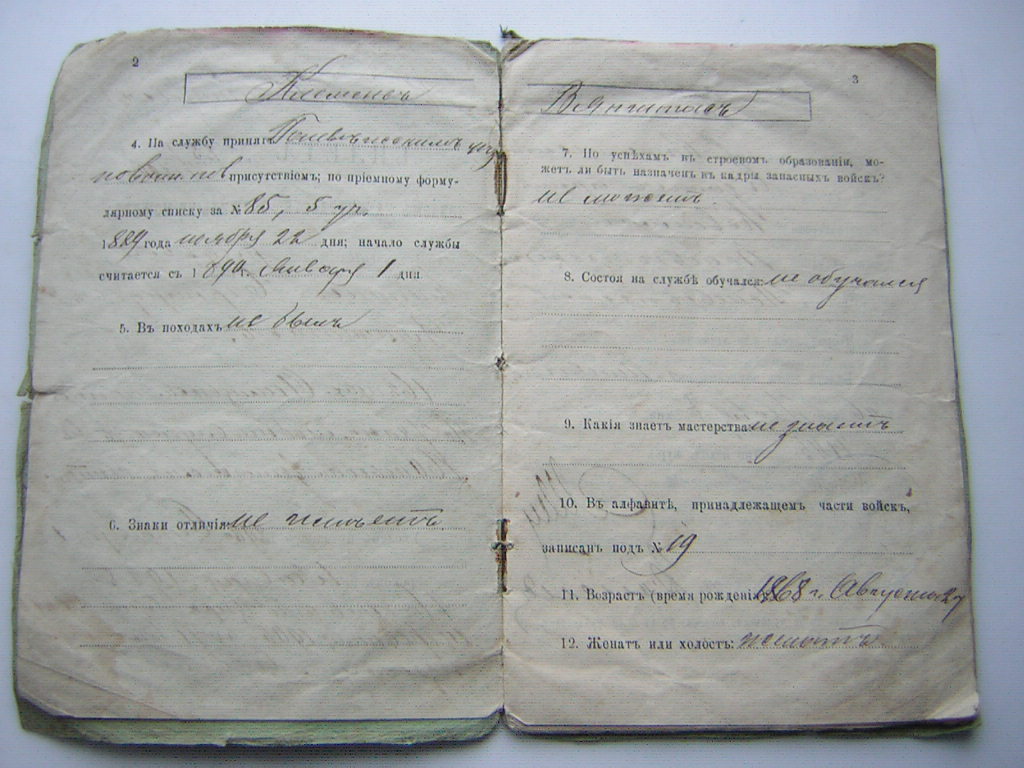 2
Клеменсъ
4. На службу принятъ
присутствіемъ; по пріемному форму-
лярному списку за № 85, 5 уч.
1889 года ноября 22 дня; начало службы
считается съ 1890 г. Января 1 дня
5. Въ походахъ не былъ
6. Знаки отличія: не имѣетъ
3
7. По успѣхамъ въ строевомъ образованіи, мо-
жетъ ли быть назначенъ въ кадры запасныхъ войскъ?
не можетъ
8. Состоя на службѣ обучался: не обучался
9. Какія знаетъ мастерства: не знаетъ
10. Въ алфавитѣ, принадлежащемъ части войскъ,
записанъ подъ № 19
11. Возрастъ (время рожденія): 1868 г. Августа 27
12. Женатъ или холостъ: женатъ